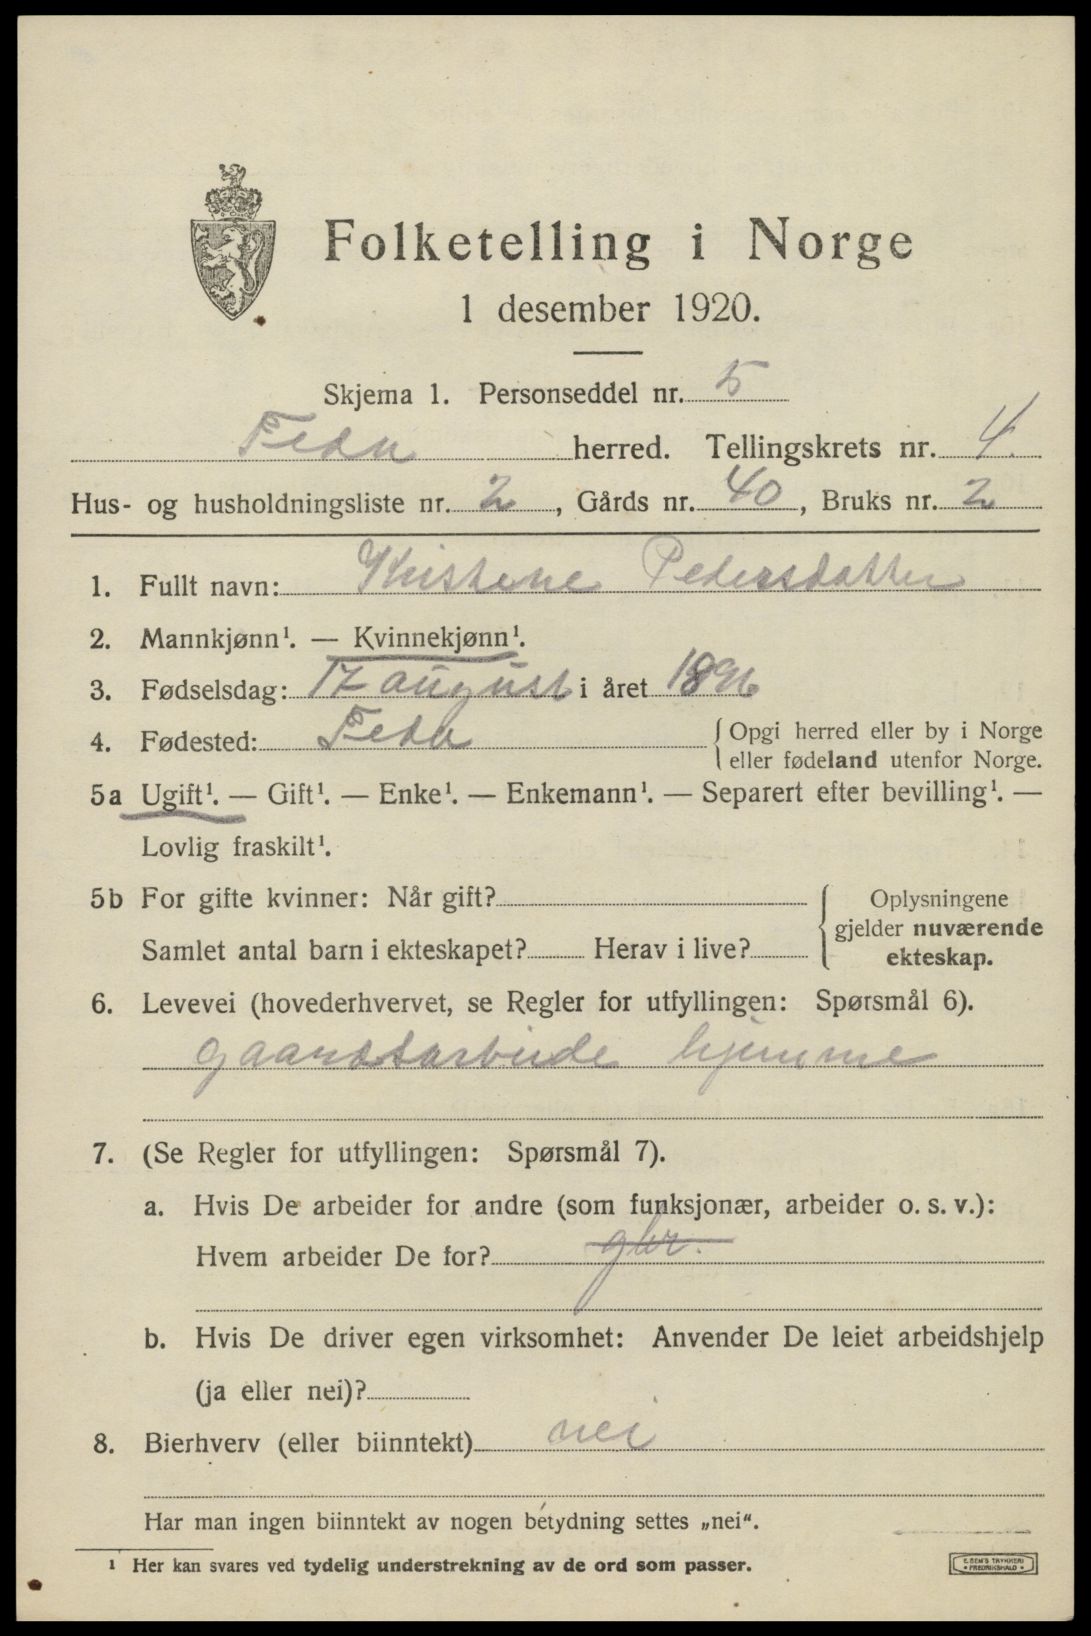 Folketelling i Norge
1 desember 1920.
Skjema 1. Personseddel nr. 5
Feda herred. Tellingskrets nr. 4.
Hus- og husholdningsliste nr. 2, Gårds nr. 40, Bruks nr. 2
1. Fullt navn: Kristene Pedersdatter
2. Mannkjønn¹. — Kvinnekjønn¹.
3. Fødselsdag: 17 august i året 1896
4. Fødested: Feda {Opgi herred eller by i Norge
eller fødeland utenfor Norge.
5a Ugift¹. — Gift¹. — Enke¹. — Enkemann¹. — Separert efter bevilling¹. —
Lovlig fraskilt¹.
5b For gifte kvinner: Når gift? { Oplysningene
gjelder nuværende
Samlet antal barn i ekteskapet? Herav i live? ekteskap.
6. Levevei (hovederhvervet, se Regler for utfyllingen: Spørsmål 6).
gaardsarbeide hjemme
7. (Se Regler for utfyllingen: Spørsmål 7).
a. Hvis De arbeider for andre (som funksjonær, arbeider o. s. v.):
Hvem arbeider De for? gbr.
b. Hvis De driver egen virksomhet: Anvender De leiet arbeidshjelp
(ja eller nei)?
8. Bierhverv (eller biinntekt) nei
Har man ingen biinntekt av nogen betydning settes „nei“.
¹ Her kan svares ved tydelig understrekning av de ord som passer.
E. SEM'S TRYKKERI
• FREDRIKSHALD •